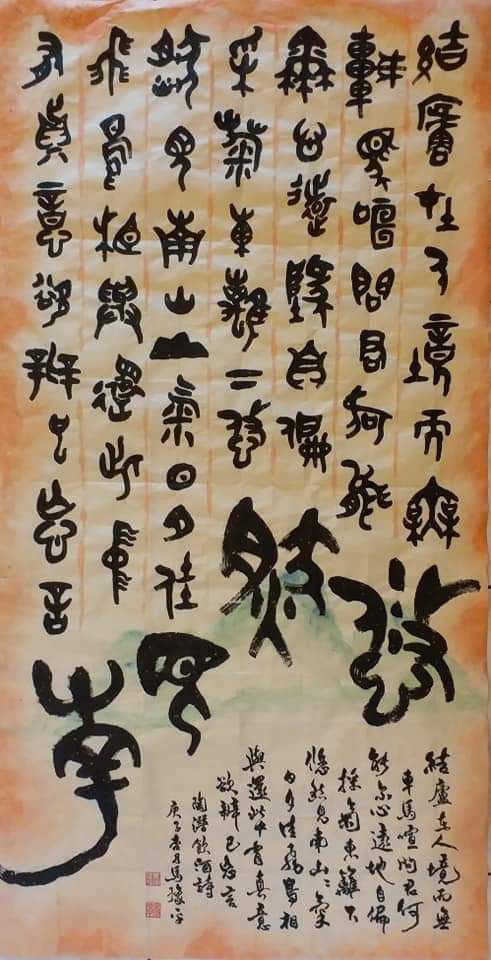 結廬在人境而無
車馬喧問君何能
爾心遠地自偏
采菊東籬下悠
然見南山山氣日夕佳
飛鳥相與還此中
有真意欲辨已忘言
悠然見南
結廬在人境而無
車馬喧問君何
能爾心遠地自偏
採菊東籬下
悠然見南山〻氣
日夕佳飛鳥相
與還此中有真意
欲辯已忘言
陶潛飲酒詩
庚子杏月馬豫平